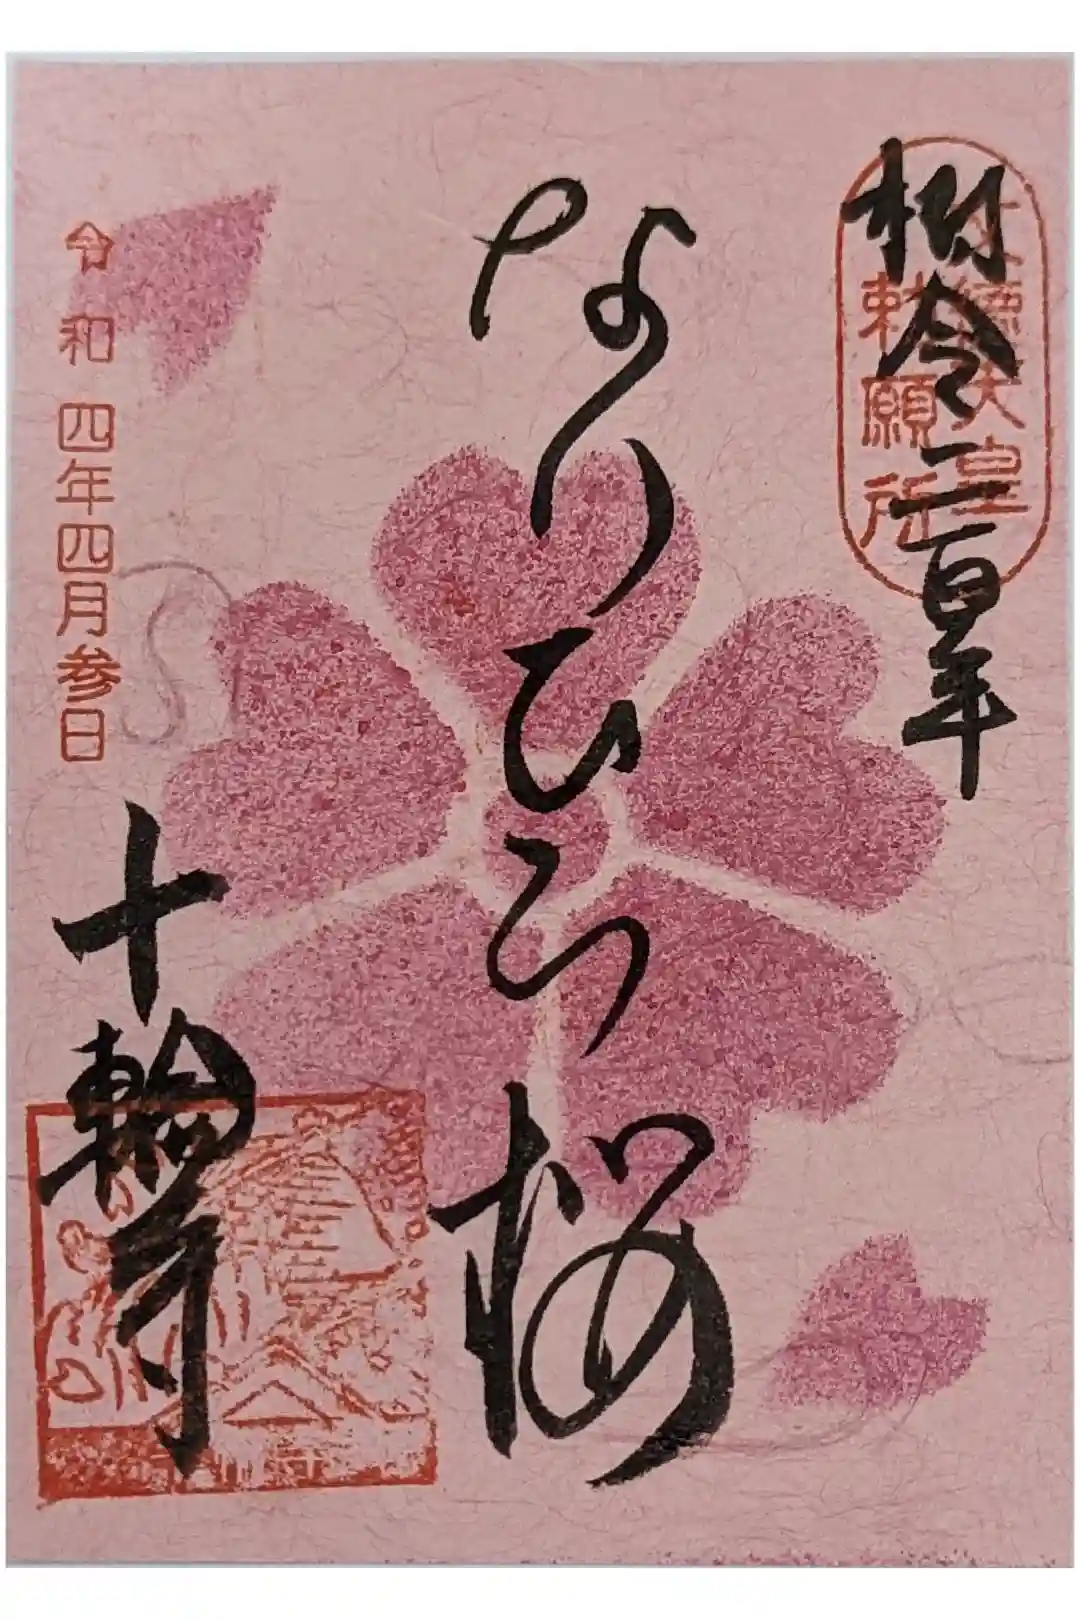 樹令二百年
文徳天皇
勅願所
なりひら桜
令和四年四月参日
十輪寺